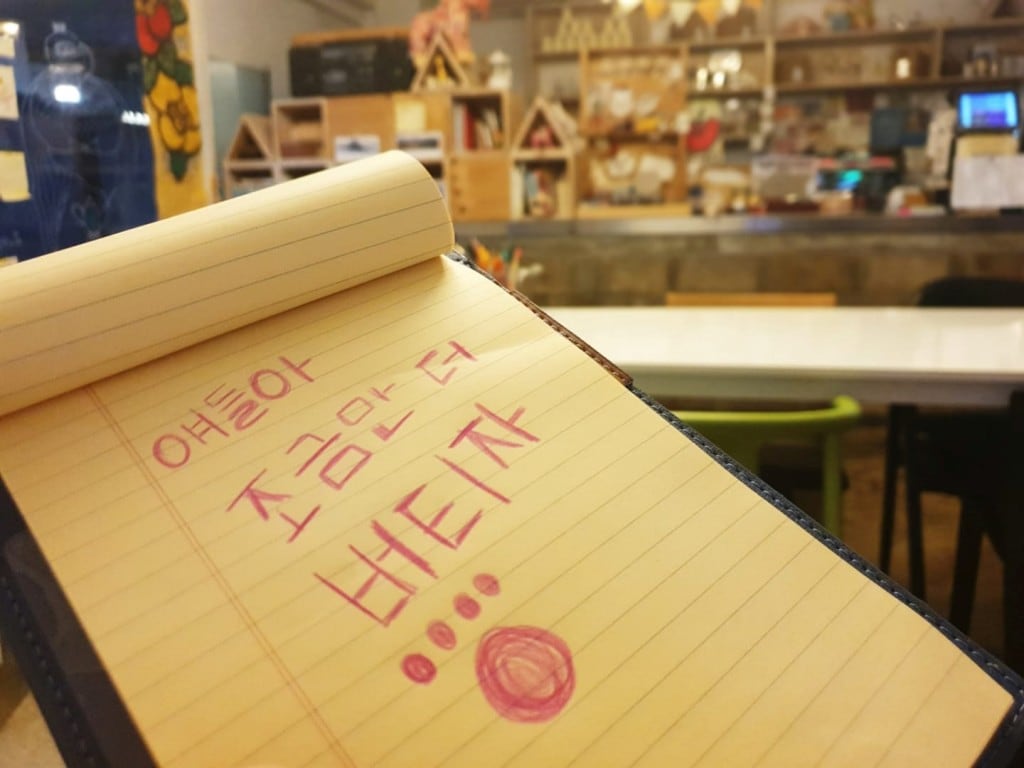 얘들아
조금만 더
버티자